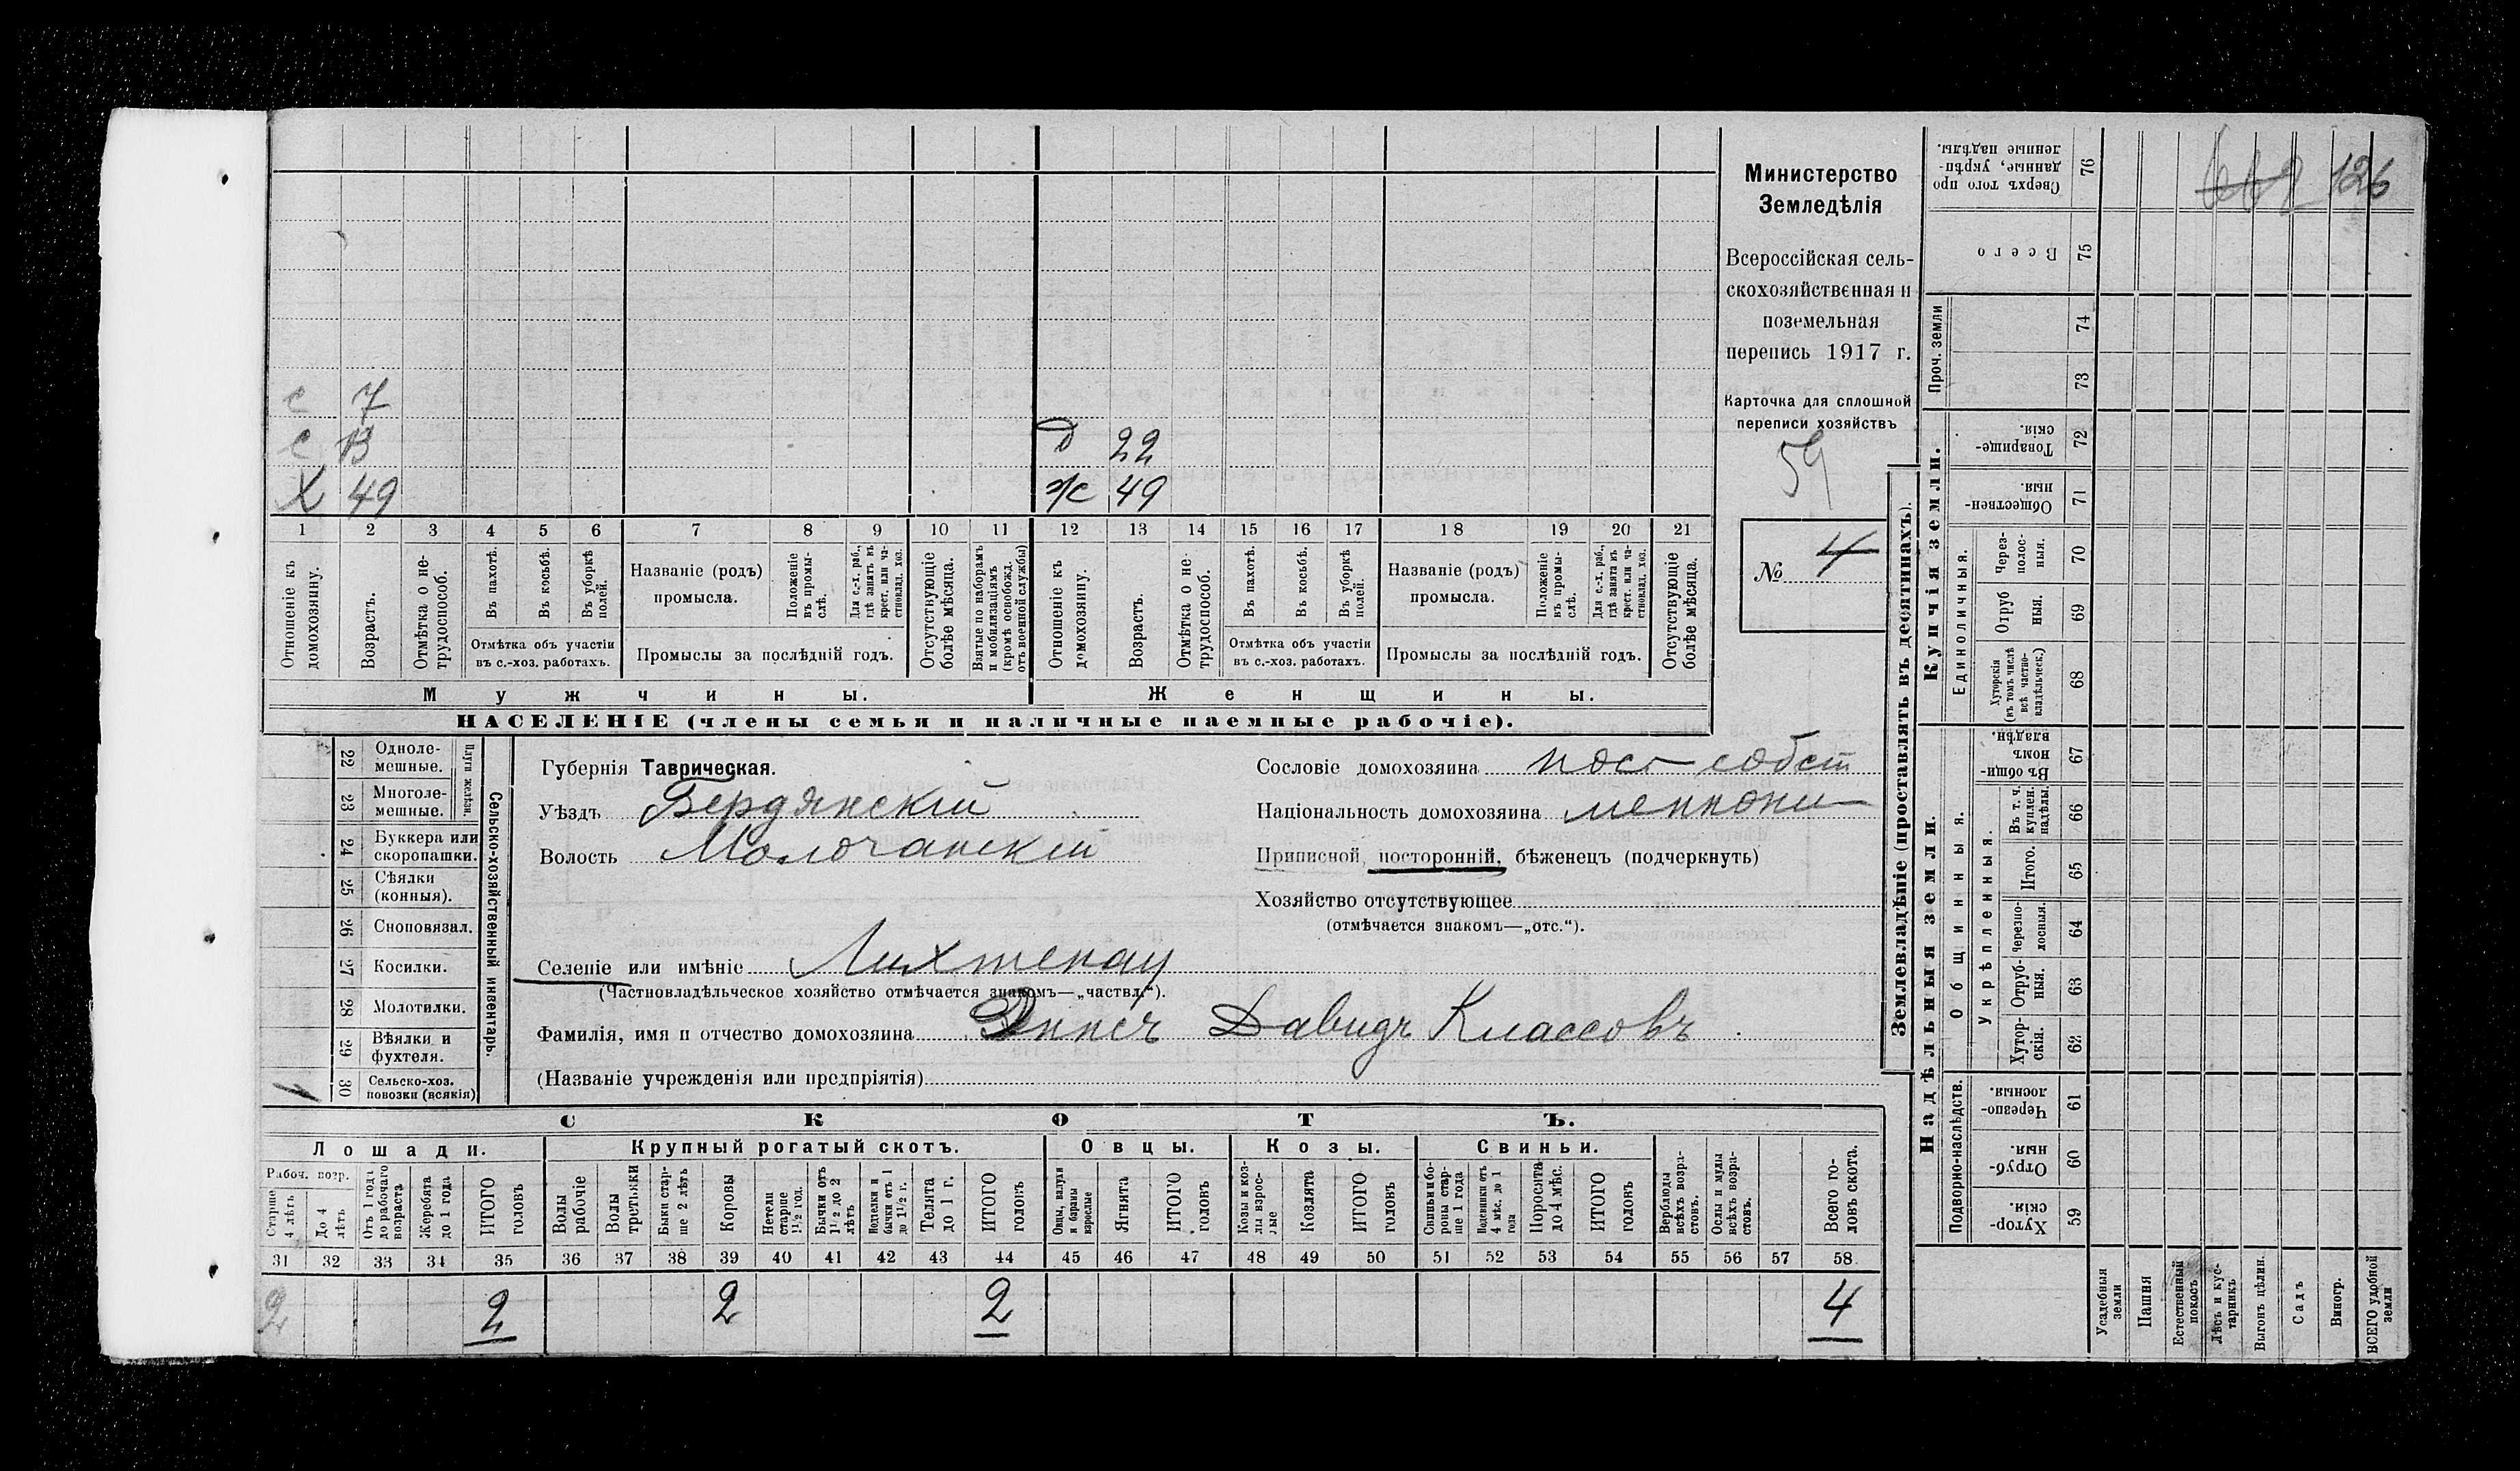 662 126
Министерство
Земледѣлія
Всероссійская сель-
скохозяйственная и
поземельная
перепись 1917 г.
Карточка для сплошной
переписи хозяйствъ
59
№ 4
с 7
с 13 Д 22
Х 49 ж 49
1 2 3 4 5 6 7 8 9 10 11 12 13 14 15 16 17 18 19 20 21
Отношеніе къ домохозяину.
Возрастъ.
Отмѣтка о не-трудоспособ.
Въ пахотѣ.
Въ косьбѣ.
Въ уборкѣ полей.
Отмѣтка объ участіи
въ с.-хоз. работахъ.
Названіе (родъ)
промысла.
Положеніе въ промы-слѣ.
Для с.-х. раб., гдѣ занятъ въ крест. или ча-стновлад. хоз.
Промыслы за послѣдній годъ.
Отсутствующіе болѣе мѣсяца.
Взятые по наборамъ и мобилизаціямъ (кромѣ освобожд. отъ военной службы)
Отношеніе къ домохозяину.
Возрастъ.
Отмѣтка о не-трудоспособ.
Въ пахотѣ.
Въ косьбѣ.
Въ уборкѣ полей.
Отмѣтка объ участіи
въ с.-хоз. работахъ.
Названіе (родъ)
промысла.
Положеніе въ промы-слѣ.
Для с.-х. раб., гдѣ занята въ крест. или ча-стновлад. хоз.
Промыслы за послѣдній годъ.
Отсутствующіе болѣе мѣсяца.
Мужчины. Женщины.
НАСЕЛЕНІЕ (члены семьи и наличные наемные рабочіе).
Сельско-хозяйственный инвентарь.
Плуги желѣзн.
22 Одноле-мешные.
23 Многоле-мешные.
24 Буккера или скоропашки.
25 Сѣялки (конныя).
26 Сноповязал.
27 Косилки.
28 Молотилки.
29 Вѣялки и фухтеля.
1 30 Сельско-хоз. повозки (всякія)
Губернія Таврическая.
Уѣздъ Бердянскій
Волость Молочанскій
Сословіе домохозяина пос собст
Національность домохозяина меннони
Приписной, посторонній, бѣженецъ (подчеркнуть)
Хозяйство отсутствующее
(отмѣчается знакомъ—„отс.“).
Селеніе или имѣніе Лихтенау
(Частновладѣльческое хозяйство отмѣчается знакомъ—„частвл.“).
Фамилія, имя и отчество домохозяина Эннсъ Давидъ Классовъ
(Названіе учрежденія или предпріятія)
СКОТЪ.
Лошади. Крупный рогатый скотъ. Овцы. Козы. Свиньи.
Рабоч. возр.
Старше 4 лѣтъ
До 4 лѣтъ
Отъ 1 года до рабочаго возраста
Жеребята до 1 года
ИТОГО головъ
Волы рабочіе
Волы третьяки
Быки стар-ше 2 лѣтъ
Коровы
Нетели старше 1½ год.
Бычки отъ 1½ до 2 лѣтъ
Нетели и бычки отъ 1 до 1½ г.
Телята до 1 г.
ИТОГО головъ
Овцы, валухи и бараны взрослые
Ягнята
ИТОГО головъ
Козы и коз-лы взрос-лые
Козлята
ИТОГО головъ
Свиньи и бо-ровы стар-ше 1 года
Подсвинки отъ 4 мѣс. до 1 года
Поросята до 4 мѣс.
ИТОГО головъ
Верблюды всѣхъ возра-стовъ.
Ослы и мулы всѣхъ возра-стовъ.
Всего го-ловъ скота.
31 32 33 34 35 36 37 38 39 40 41 42 43 44 45 46 47 48 49 50 51 52 53 54 55 56 57 58
2 2 2 2 4
Землевладѣніе (проставлять въ десятинахъ).
Купчія земли.
Надѣльныя земли.
76 Сверхъ того про-данные, укрѣп-ленные надѣлы.
75 Всего
Проч. земли
74
73
72 Товарище-скія.
71 Обществен-ныя.
Единоличныя.
70 Через-полос-ныя.
69 Отруб-ныя.
68 Хуторскія (въ томъ числѣ всѣ частно-владѣльческ.)
Общинныя.
67 Въ общин-номъ владѣн.
Укрѣпленныя.
66 Въ т. ч. куплен. надѣлы.
65 Итого.
64 Черезпо-лосныя.
63 Отруб-ныя.
62 Хутор-скія.
Подворно-наслѣдств.
61 Черезпо-лосныя.
60 Отруб-ныя.
59 Хутор-скія.
Усадебныя земли
Пашня
Естественный покосъ
Лѣсъ и кус-тарникъ
Выгонъ цѣлин.
Садъ
Виногр.
ВСЕГО удобной земли